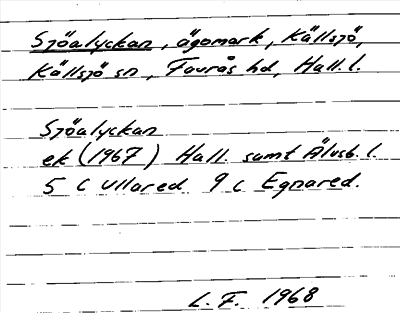 Sjöalyckan, ägomark, Källsjö,
Källsjö sn, Faurås hd, Hall. l.
Sjöalyckan
ek (1967) Hall. samt Älvsb. l.
5 C Ullared 9 C Egnared.
L. F. 1968